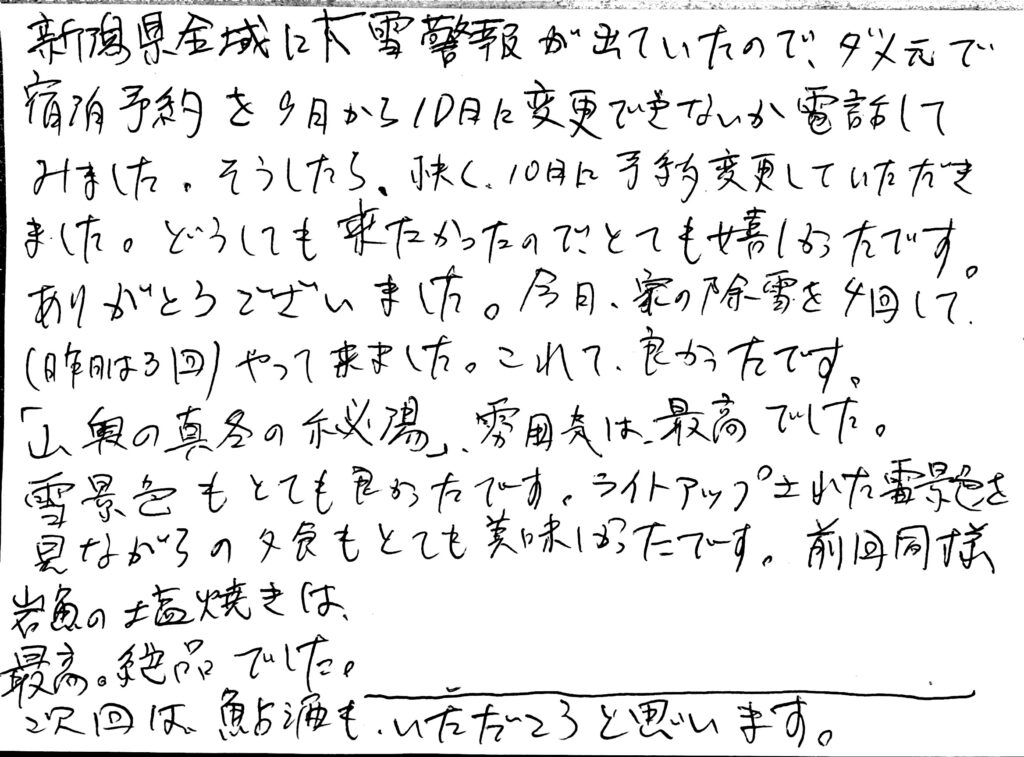 新潟県全域に大雪警報が出ていたので、ダメ元で
宿泊予約を9日から10日に変更できないか電話して
みました。そうしたら、快く、10日に予約変更していただき
ました。どうしても来たかったので、とても嬉しかったです。
ありがとうございました。今日、家の除雪を4回して、
(昨日は3回)やって来ました。これて、良かったです。
「山奥の真冬の秘湯」、雰囲気は、最高でした。
雪景色もとても良かったです。ライトアップされた雪景色を
見ながらの夕食もとても美味しかったです。前回同様
岩魚の塩焼きは、
最高。絶品でした。
次回は、鮎酒も、いただこうと思います。